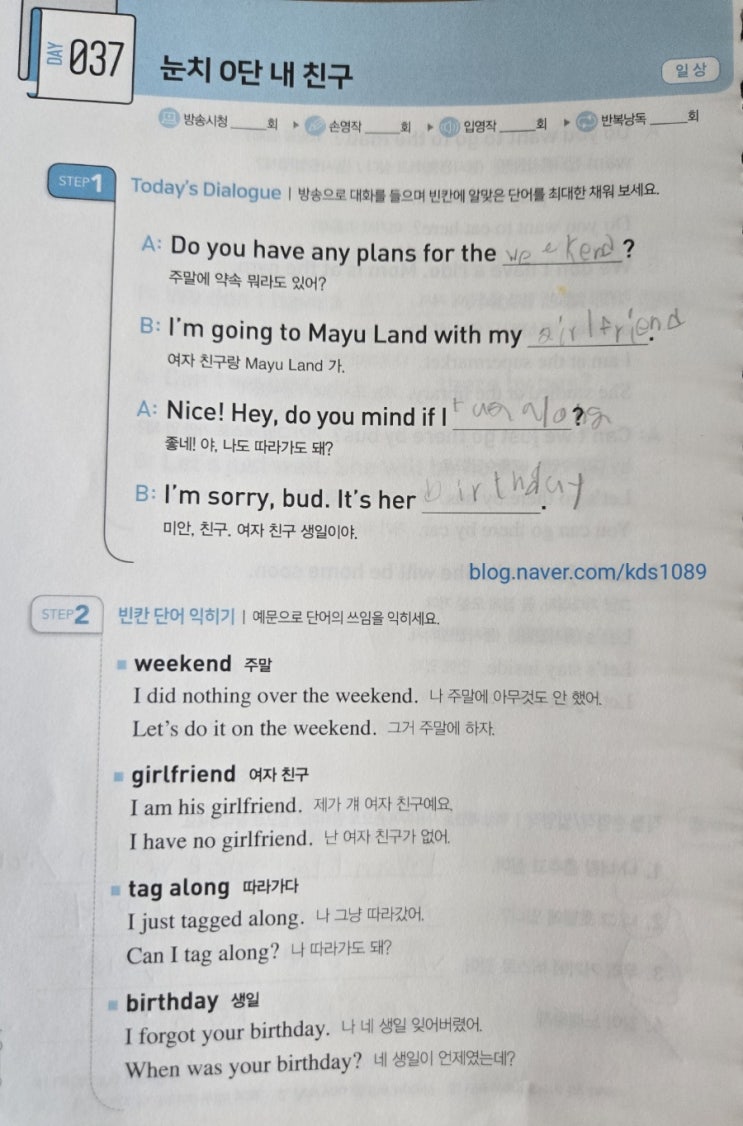 DAY 037
눈치 0단 내 친구
일상
방송시청 _____회 ▶ 손영작 _____회 ▶ 입영작 _____회 ▶ 반복낭독 _____회
STEP1 Today's Dialogue | 방송으로 대화를 들으며 빈칸에 알맞은 단어를 최대한 채워 보세요.
A: Do you have any plans for the weekend?
주말에 약속 뭐라도 있어?
B: I'm going to Mayu Land with my girlfriend.
여자 친구랑 Mayu Land 가.
A: Nice! Hey, do you mind if I along?
좋네! 야, 나도 따라가도 돼?
B: I'm sorry, bud. It's her birthday.
미안, 친구. 여자 친구 생일이야.
blog.naver.com/kds1089
STEP2 빈칸 단어 익히기 | 예문으로 단어의 쓰임을 익히세요.
weekend 주말
I did nothing over the weekend. 나 주말에 아무것도 안 했어.
Let's do it on the weekend. 그거 주말에 하자.
girlfriend 여자 친구
I am his girlfriend. 제가 걔 여자 친구예요.
I have no girlfriend. 난 여자 친구가 없어.
tag along 따라가다
I just tagged along. 나 그냥 따라갔어.
Can I tag along? 나 따라가도 돼?
birthday 생일
I forgot your birthday. 나 네 생일 잊어버렸어.
When was your birthday? 네 생일이 언제였는데?